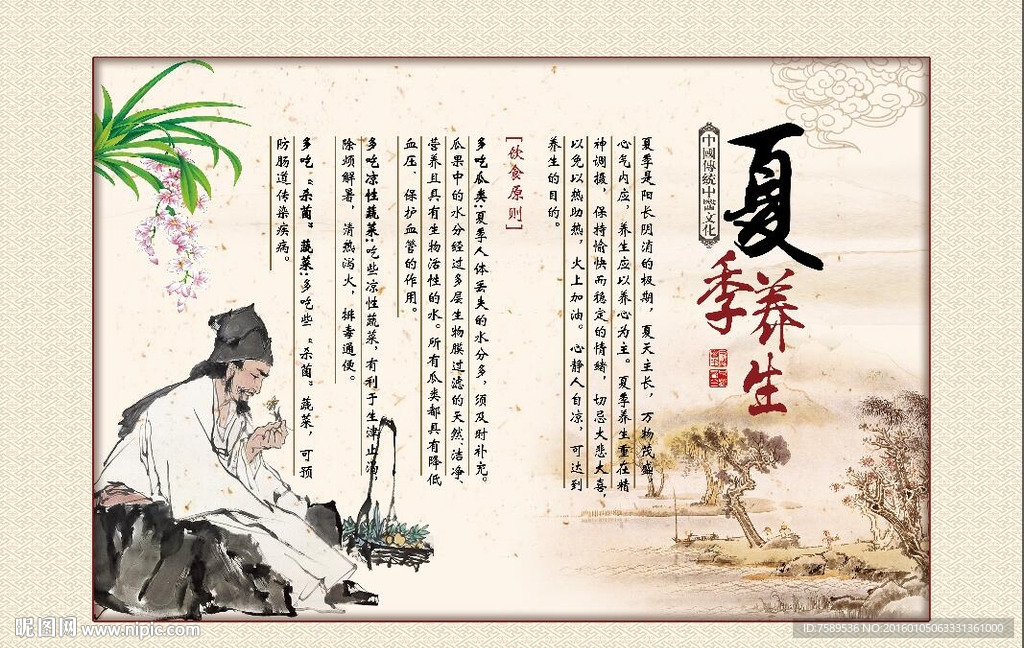 夏
季养生
中國傳統中醫文化
夏季是阳长阴消的极期，夏天主长，万物茂盛。
心气内应，养生应以养心为主。夏季养生重在精
神调摄，保持愉快而稳定的情绪，切忌大悲大喜，
以免以热助热，火上加油。心静人自凉，可达到
养生的目的。
[饮食原则]
多吃瓜类:夏季人体丢失的水分多，须及时补充。
瓜果中的水分经过多层生物膜过滤的天然、洁净、
营养且具有生物活性的水。所有瓜类都具有降低
血压、保护血管的作用。
多吃凉性蔬菜:吃些凉性蔬菜，有利于生津止渴，
除烦解暑，清热泻火，排毒通便。
多吃“杀菌”蔬菜:多吃些“杀菌”蔬菜，可预
防肠道传染疾病。
昵图网 www.nipic.com
ID:7589536 NO:20160105063331361000